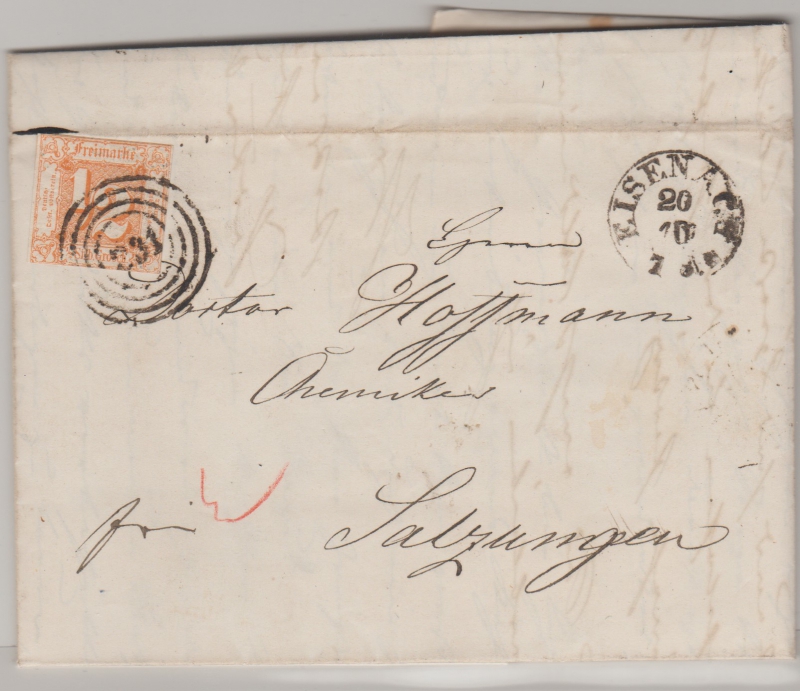 Freimarke
1/2
EISENACH
20
10
Herrn
Doctor Hoffmann
Chemiker
fr
Salzungen